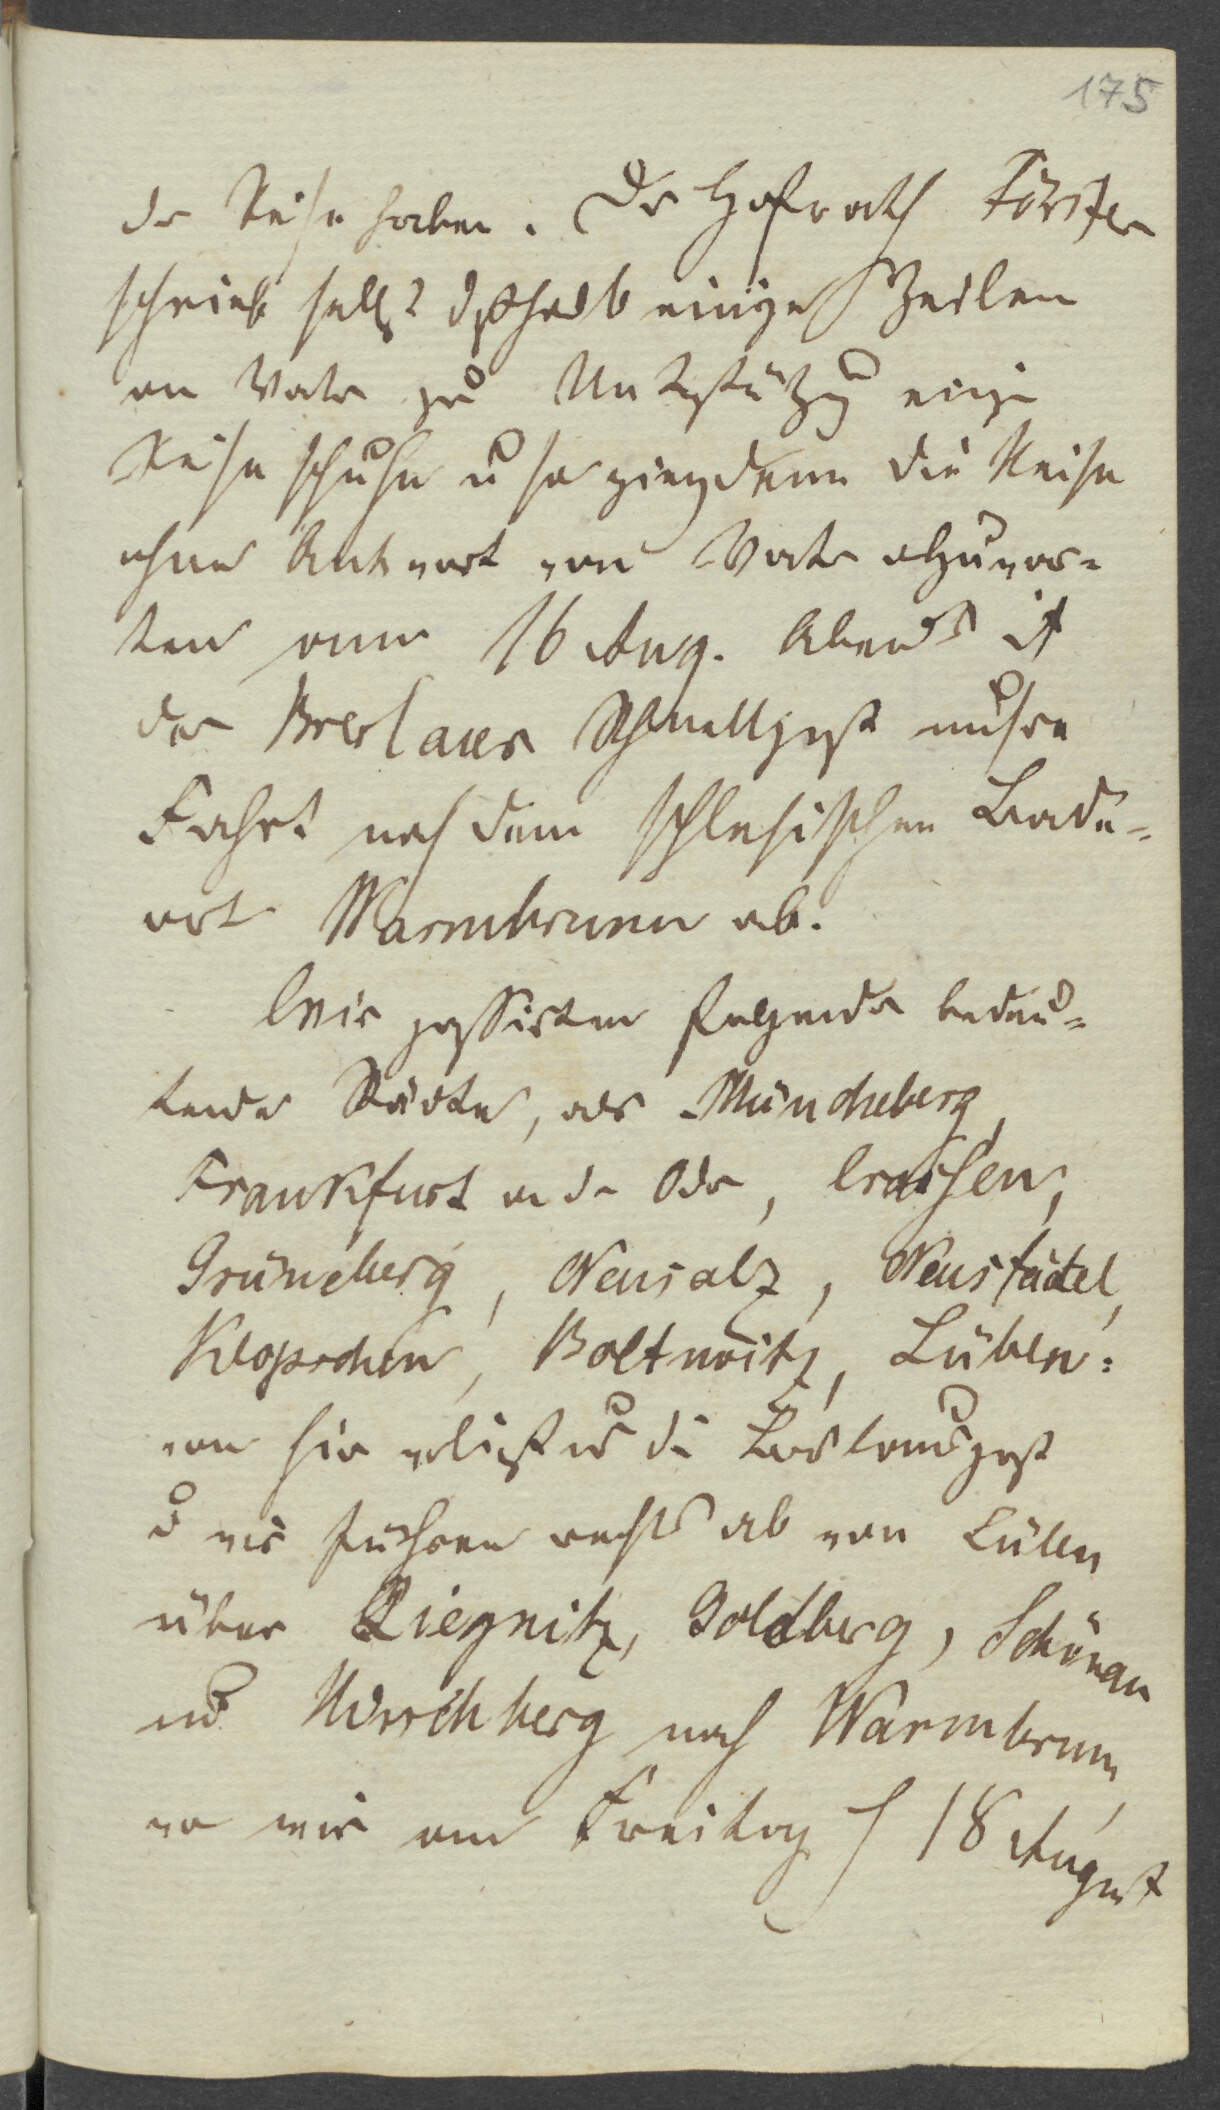 175
der Reise haben. Der Hofrath Förster
schrieb selbst deßhalb einige Zeilen
an Vater zur Unterstützung einige
Reise schuhe u so ging denn die Reise
ohne Antwort von Vater abzuwar-
ten am 16 Aug. Abends mit
der Breslauer Schnellpost unsre
Fahrt nach dem schlesischen Bade-
ort Warmbrunn ab.
Wir passirten folgende bedeu-
tende Städte, als Müncheberg,
Frankfurt an der Oder, Crossen,
Grüneberg, Neusalz, Neustädtel,
Klopschen, Polkwitz, Lüben:
von hier verließen wir die Breslauer post
u wir fuhren rechts ab von Lüben
über Liegnitz, Goldberg, Schönau
und Hirschberg nach Warmbrunn,
wo wir am Freitag d 18 August